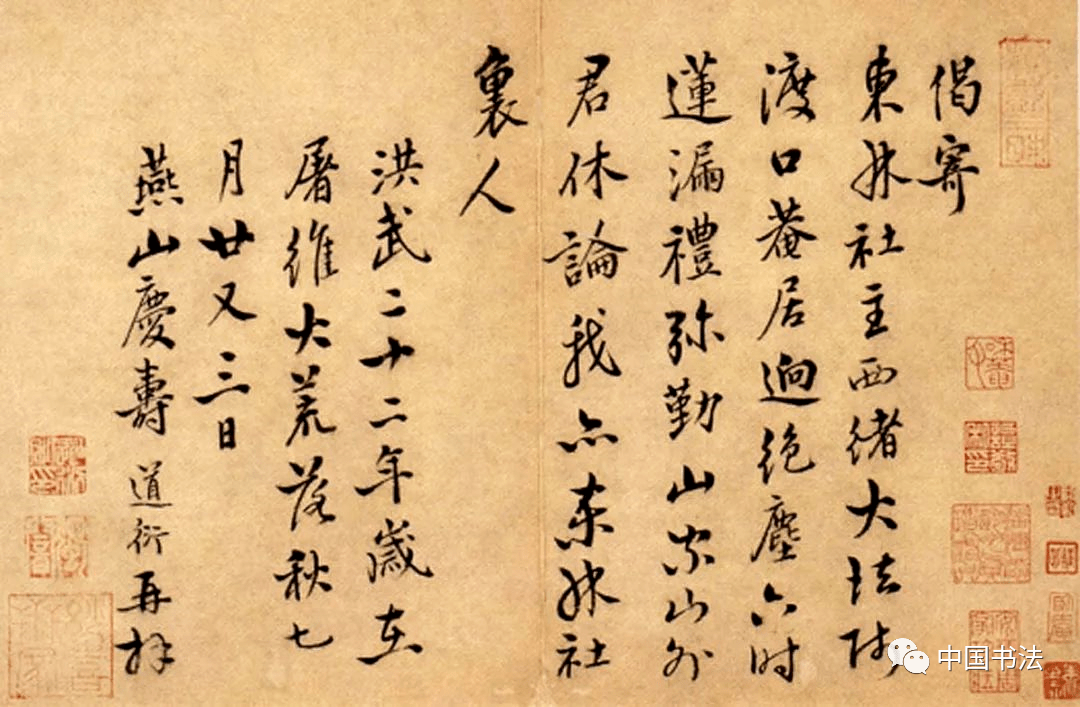 偈寄
東林社主西緒大法師
渡口菴居逈絶塵六時
蓮漏禮弥勒山家山外
君休論我亦東林社
裏人
洪武二十二年歲在
屠維大荒落秋七
月廿又三日
燕山慶壽道衍再拜
中国书法